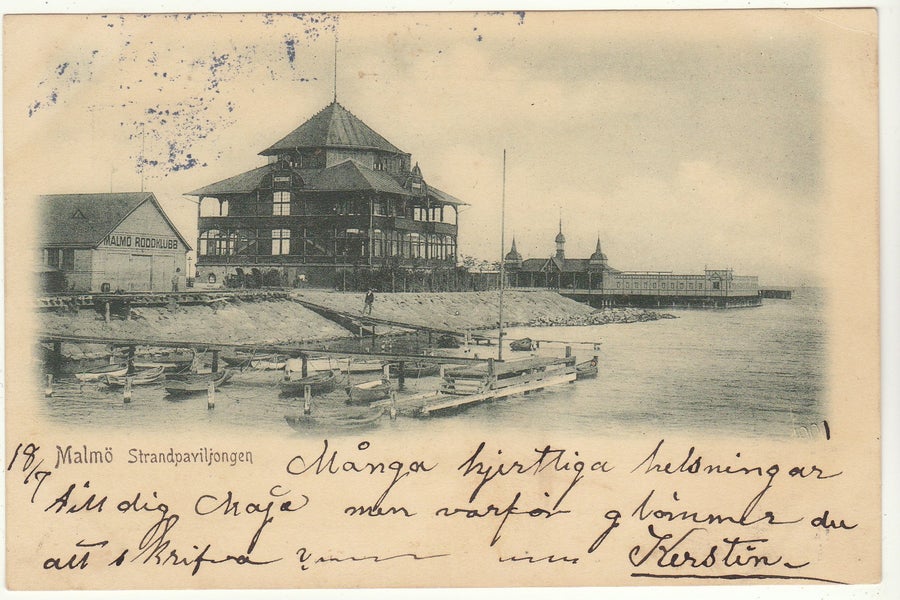 MALMÖ RODDKLUBB
1901
18/7 Malmö Strandpaviljongen Många hjertliga helsningar
till dig Maja men varför glömmer du
att skrifva Kerstin